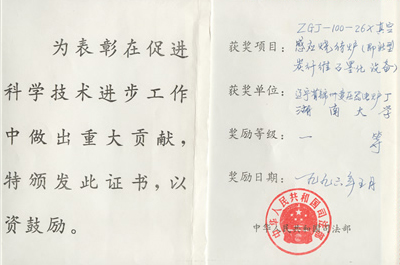 为表彰在促进
科学技术进步工作
中做出重大贡献，
特颁发此证书，以
资鼓励。
获奖项目：ZGJ-100-26X真空
感应烧结炉（
炭纤维石墨化设备）
获奖单位：
湖南大学
奖励等级：一等
奖励日期：一九九
中华人民共和国司法部
中华人民共和国司法部